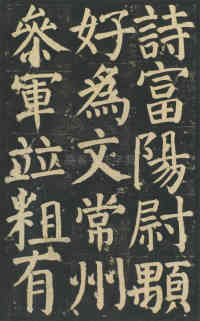 詩富陽尉顒
好為文常州
叅軍竝粗有